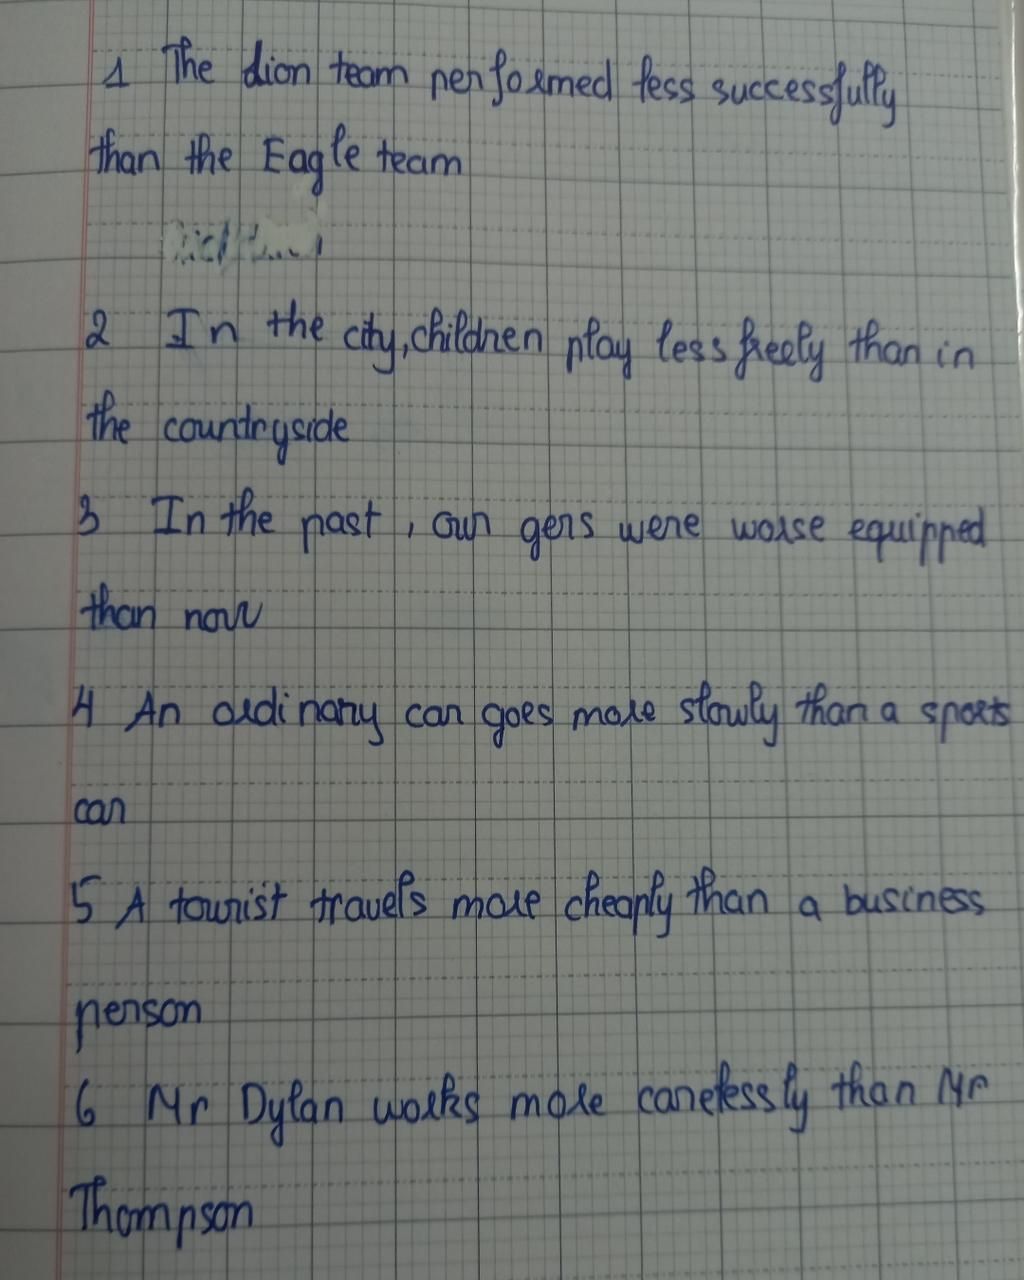 1 The Lion team performed less successfully
than the Eagle team
2 In the city, children play less freely than in
the countryside
3 In the past, our gers were worse equipped
than now
4 An ordinary car goes more slowly than a sports
car
5 A tourist travels more cheaply than a business
person
6 Mr Dylan works more carelessly than Mr
Thompson